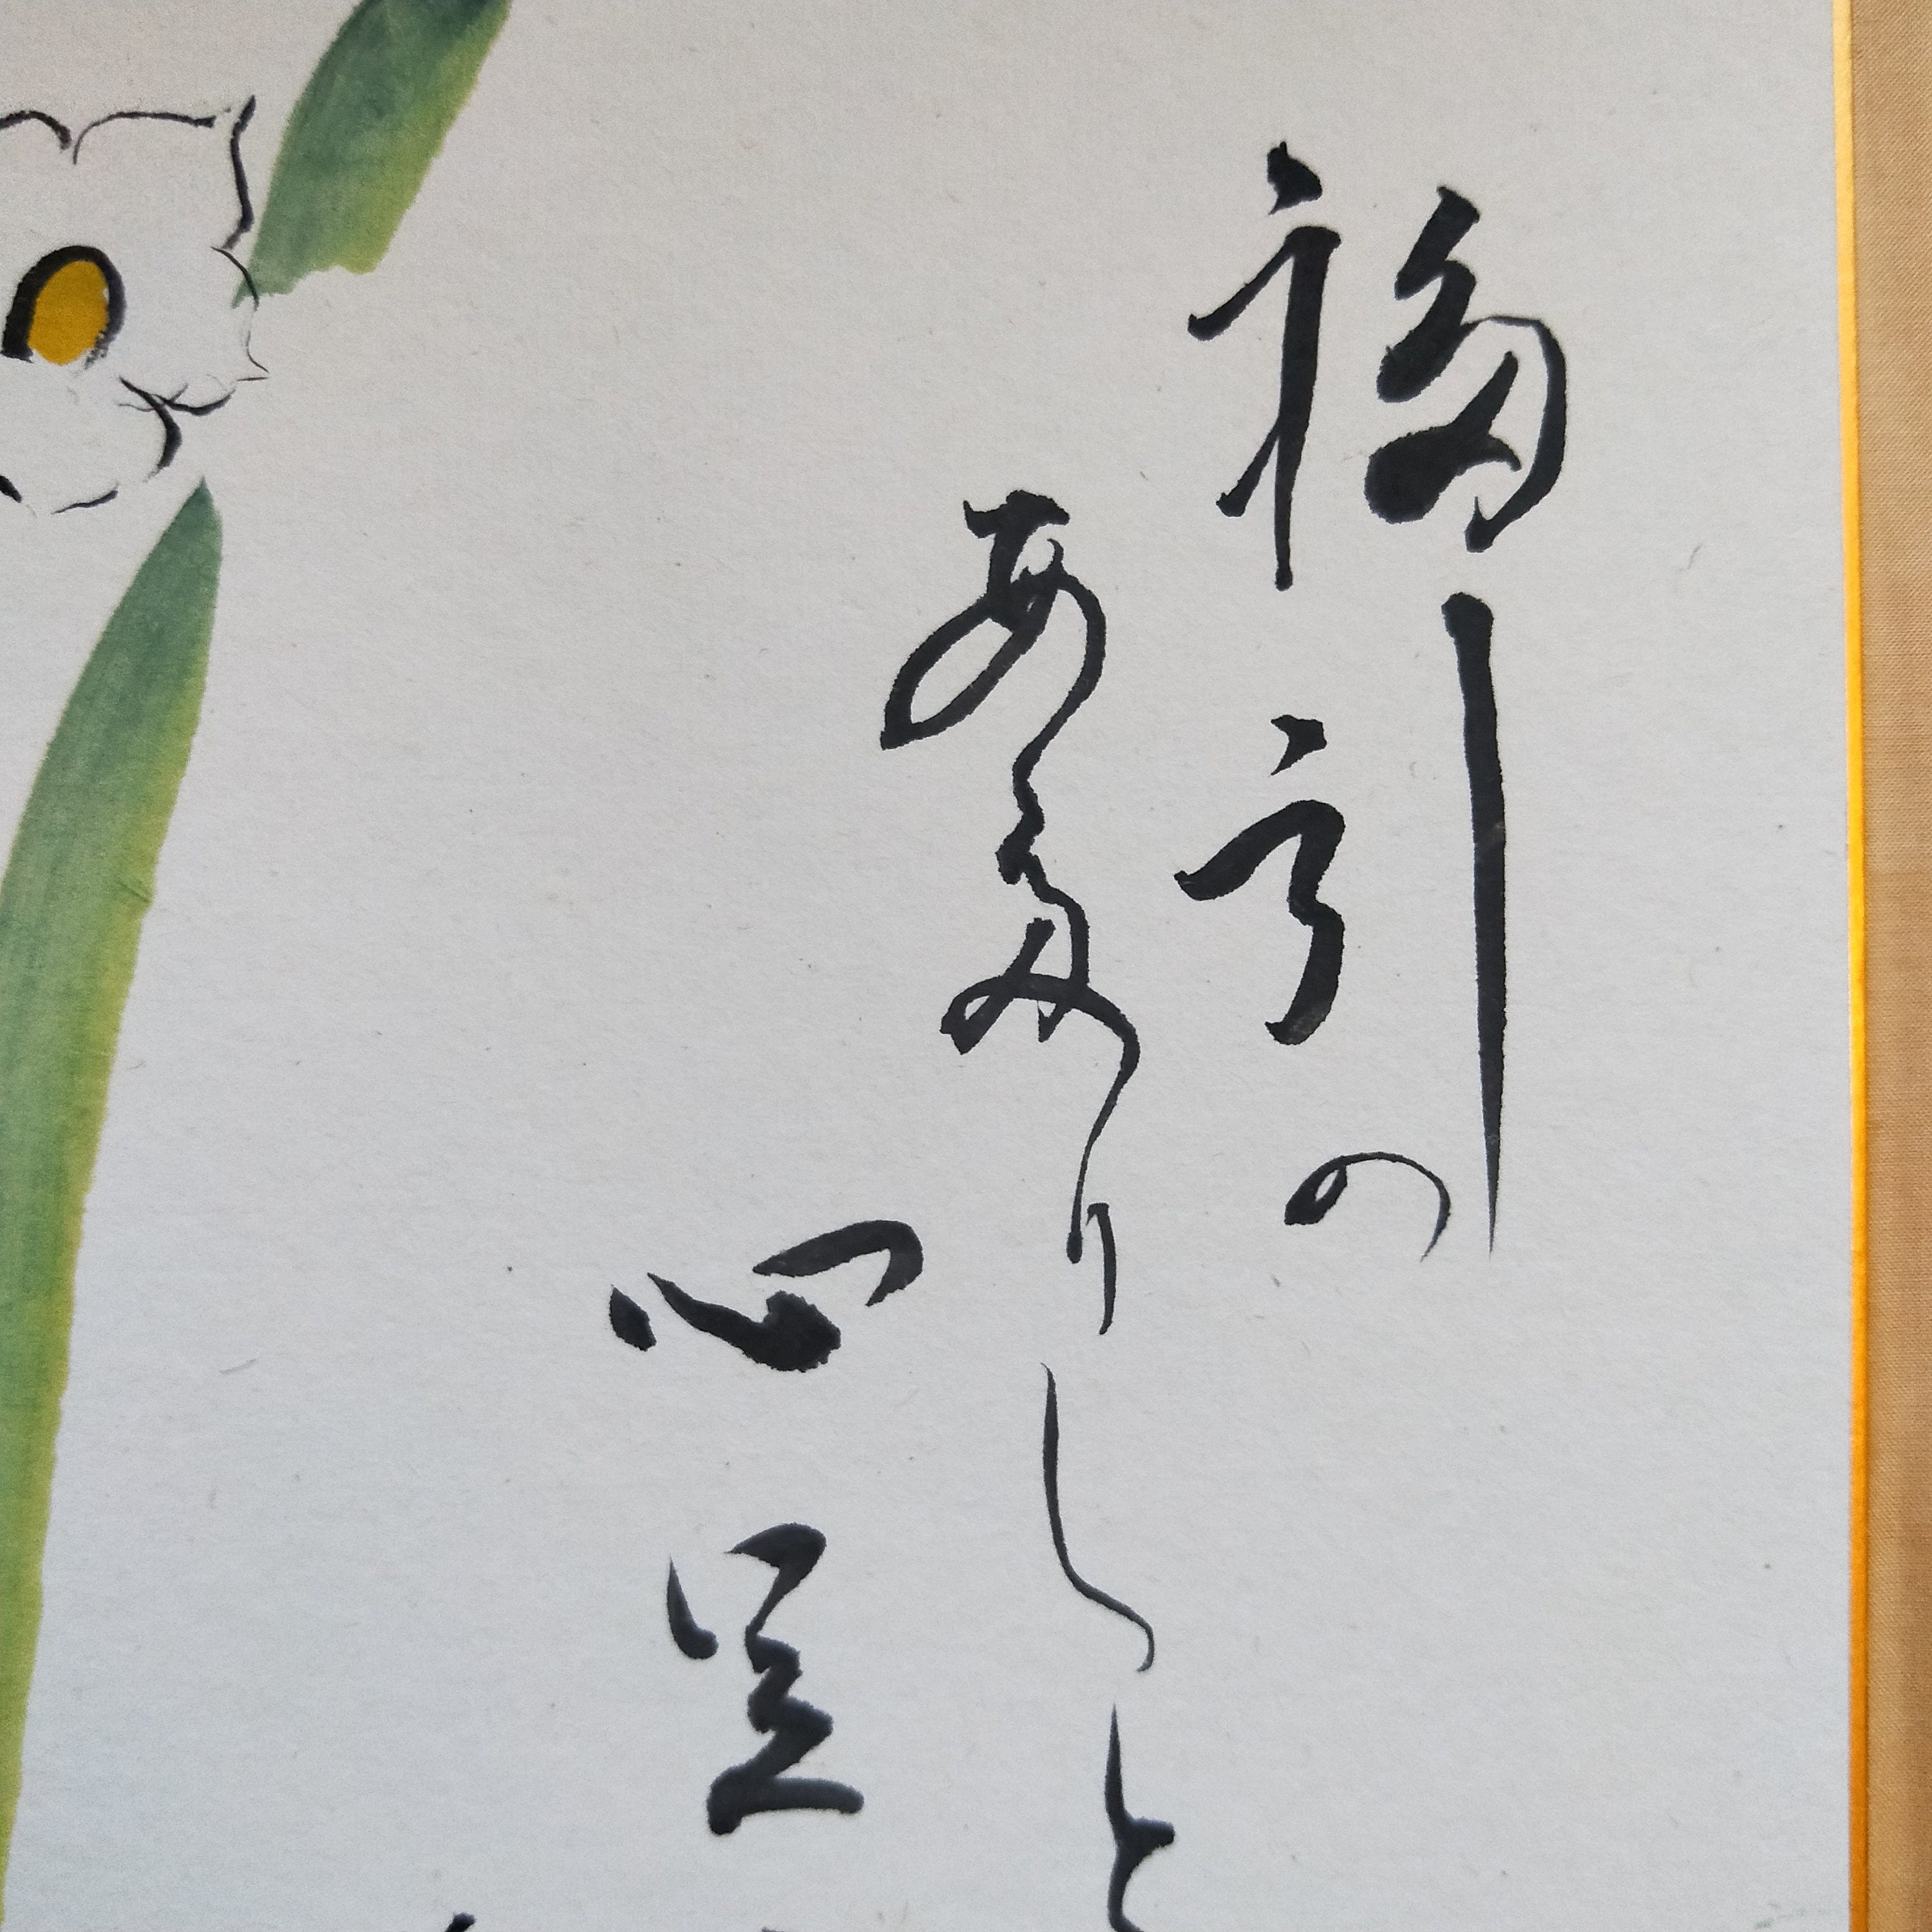 福引の
あたりしと
心足